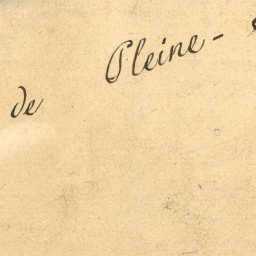 de Pleine-